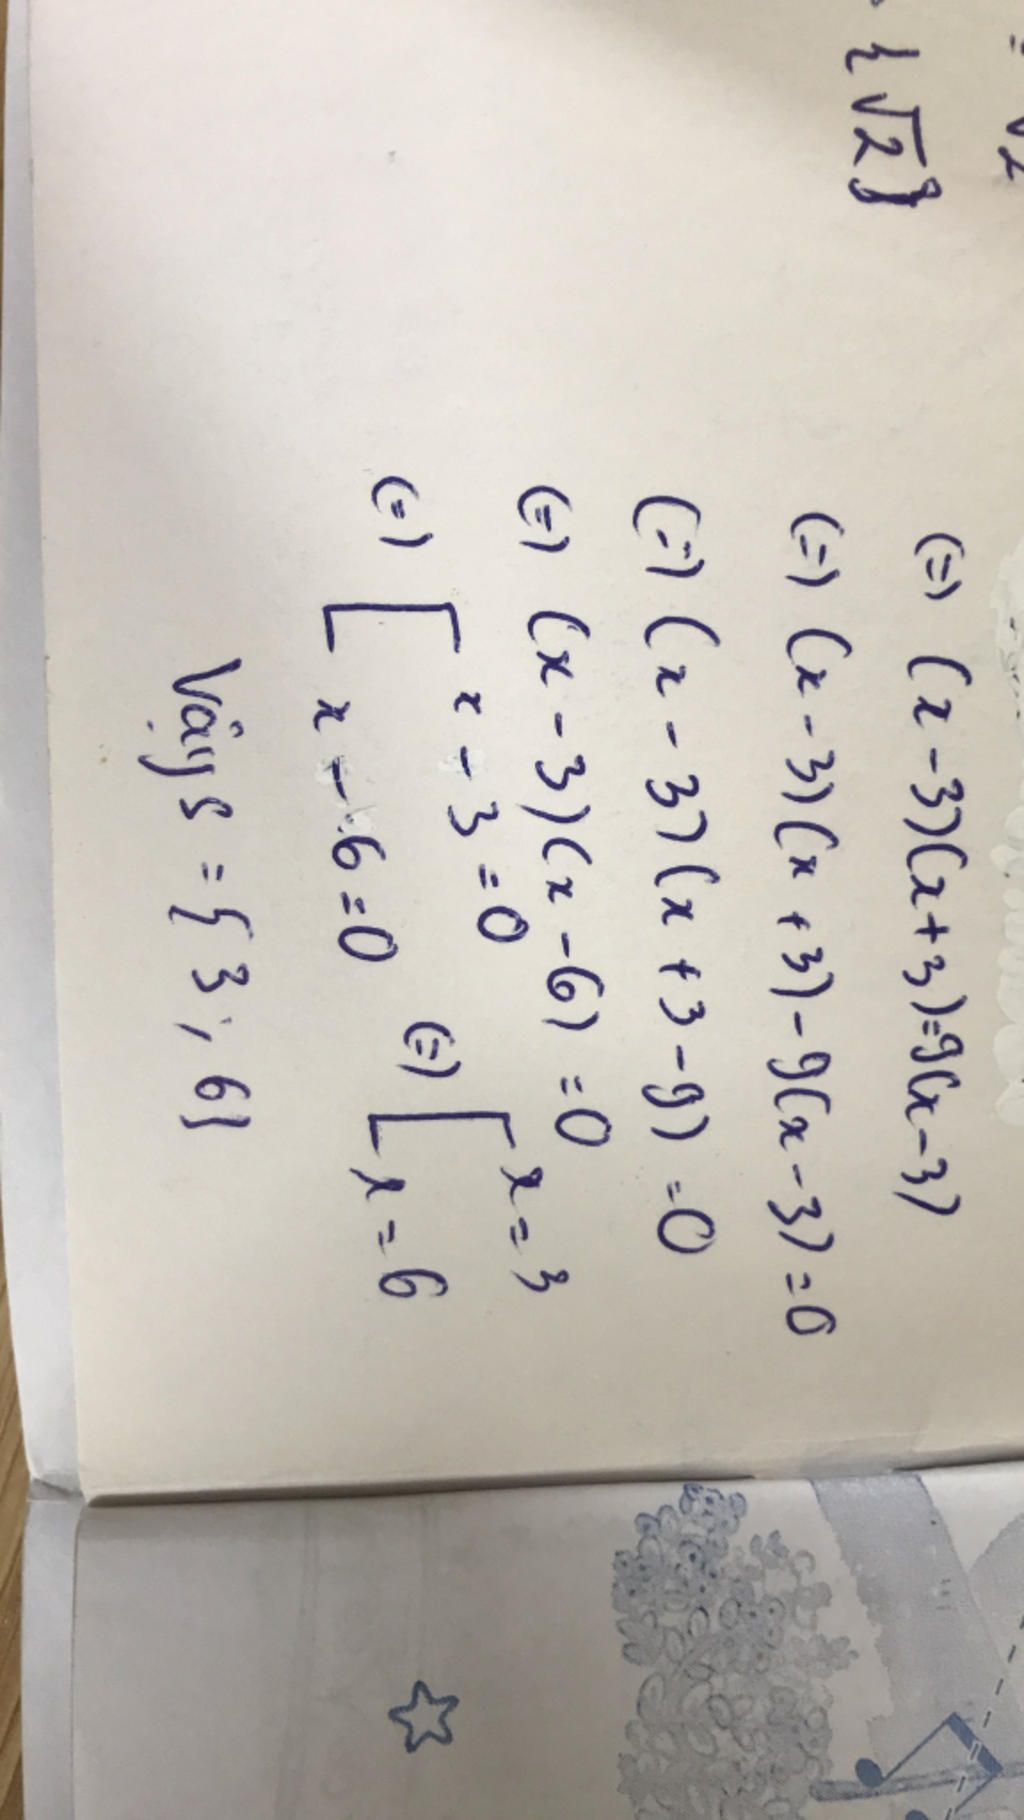 = √2
{√2}
(=) (x-3)(x+3)=9(x-3)
(=) (x-3)(x+3)-9(x-3)=0
(=) (x-3)(x+3-9)=0
(=) (x-3)(x-6)=0
(=) [ x-3=0 (=) [ x=3
x-6=0 x=6
Vậy S = { 3; 6}